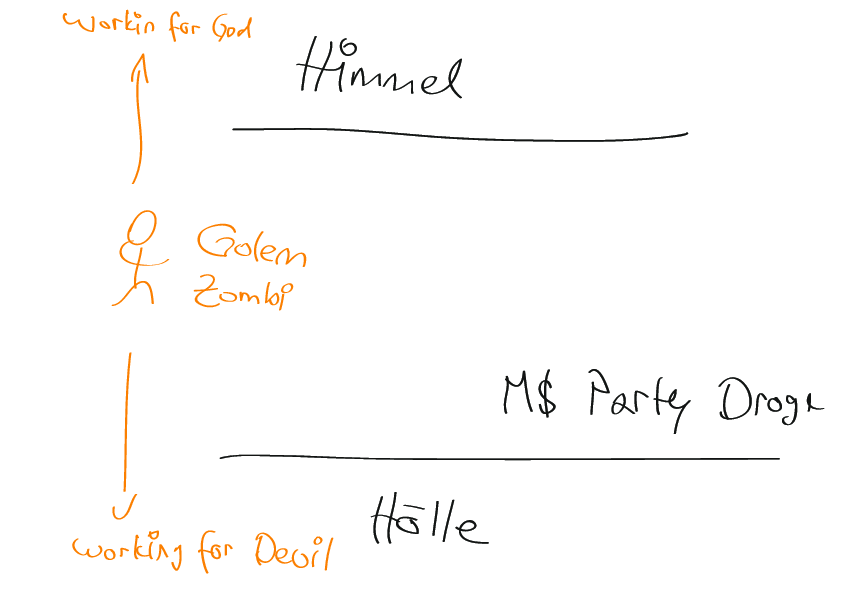 Workin for God
Himmel
Golem
Zombi
M$ Party Droge
Hölle
Working for Devil